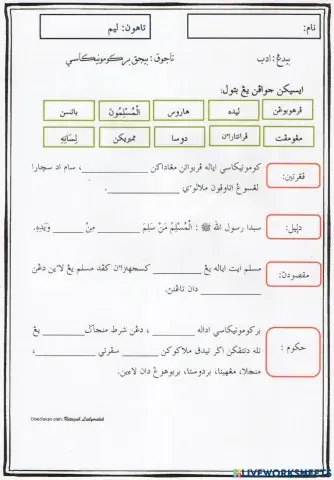 نام:
تاهون: ليم
بيدڠ: ادب
تاجوق: بيجق بركومونيكاسي
ايسيكن جواڤن يڠ بتول:
ڤرهوبوڠن
ليده
هاروس
الْمُسْلِمُونَ
باتسن
مڠومڤت
ڤرانتاراٴن
دوسا
ممبريكن
لِسَانِهِ
ڤڠرتين:
كومونيكاسي اياله ڤربواتن مڠاداكن _______، سام اد سچارا
لڠسوڠ اتاوڤون ملالوٴي _______.
دليل:
سبدا رسول الله ﷺ : الْمُسْلِمُ مَنْ سَلِمَ _______ مِنْ _______ وَيَدِهِ.
مقصودڽ:
مسلم ايت اياله يڠ _______ كسجهتراٴن كڤد مسلم يڠ لاٴين دڠن
_______ دان تاڠنڽ.
حكوم:
بركومونيكاسي اداله _______ ، دڠن شرط منجاݢ _______ يڠ
تله دتتڤكن اݢر تيدق ملاكوكن _______ سڤرتي _______،
منچلا، مڠهينا، بردوستا، بربوهوڠ دان لاٴين.
Disediakan oleh:
LIVEWORKSHEETS